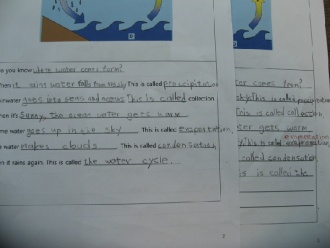 you know where water comes form?
When it rains water falls from the sky This is called precipitation
water goes into seas and oceans This is called collection
When it's Sunny, the ocean water gets warm
water goes up in the sky. This is called evaporation,
water makes clouds. This is called condensation,
n it rains again. This is called the water cycle.
ter comes from?
sky This is called precipitation
This is called collection
ter gets warm
evaporation
This is called
called condensation,
is is called the